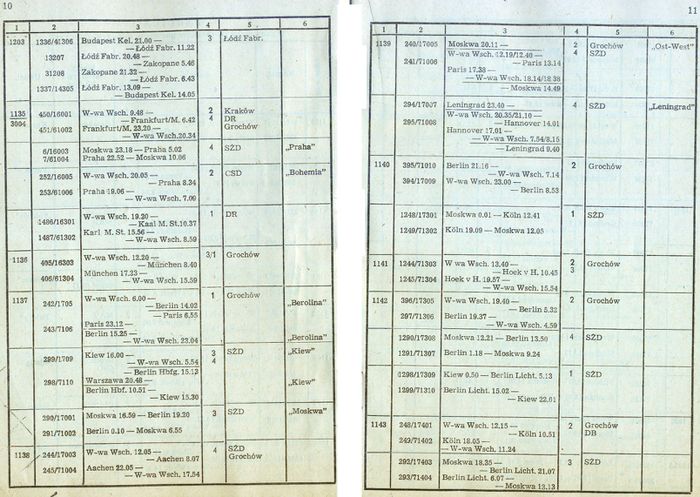 10
1 2 3 4 5 6
1203 1336/41306 Budapest Kel. 21.00 — 3 Łódź Fabr.
— Łódź Fabr. 11.22
13207 Łódź Fabr. 20.48 —
— Zakopane 5.46
31208 Zakopane 21.32 —
— Łódź Fabr. 6.43
1337/14305 Łódź Fabr. 13.09 —
— Budapest Kel. 14.05
1135 450/16001 W-wa Wsch. 9.48 — 2 Kraków
3004 — Frankfurt/M. 6.42 4 DR
451/61002 Frankfurt/M. 23.20 — Grochów
— W-wa Wsch. 20.34
6/16003 Moskwa 23.18 — Praha 5.02 4 SŻD „Praha"
7/61004 Praha 22.52 — Moskwa 10.06
252/16005 W-wa Wsch. 20.05 — 2 CSD „Bohemia"
— Praha 8.34
253/61006 Praha 19.06 —
— W-wa Wsch. 7.09
1486/16301 W-wa Wsch. 19.20 — 1 DR
— Kaal M. St. 10.37
1487/61302 Karl M. St. 15.56 —
— W-wa Wsch. 8.59
1136 405/16303 W-wa Wsch. 13.20 — 3/1 Grochów
— München 8.40
406/61304 München 17.23 —
— W-wa Wsch. 15.59
1137 242/1705 W-wa Wsch. 6.00 — 1 Grochów
— Berlin 14.02 „Berolina"
— Paris 6.55
243/7106 Paris 23.12 —
Berlin 15.25 —
— W-wa Wsch. 23.04 „Berolina"
299/1709 Kiew 16.00 — 3 SŻD „Kiew"
— W-wa Wsch. 5.54 4
— Berlin Hbfg. 15.13
298/7110 Warszawa 20.48 — „Kiew"
Berlin Hbf. 10.51 —
— Kiew 15.30
290/17001 Moskwa 16.59 — Berlin 19.20 3 SŻD „Moskwa"
291/71002 Berlin 0.10 — Moskwa 6.55
1138 244/17003 W-wa Wsch. 12.05 — 4 SŻD
— Aachen 8.07 Grochów
245/71004 Aachen 22.05 —
— W-wa Wsch. 17.54
11
1 2 3 4 5 6
1139 240/17005 Moskwa 20.11 — 2 Grochów „Ost-West"
W-wa Wsch. 12.19/12.40 — 4 SŻD
241/71006 — Paris 13.14
Paris 17.38 —
— W-wa Wsch. 18.14/18.38
— Moskwa 14.49
294/17007 Leningrad 23.40 — 4 SŻD „Leningrad"
W-wa Wsch. 20.35/21.10 —
295/71008 — Hannover 14.01
Hannover 17.01 —
— W-wa Wsch. 7.54/8.15
— Leningrad 9.40
1140 395/71010 Berlin 21.16 — 2 Grochów
— W-wa Wsch. 7.14
394/17009 W-wa Wsch. 23.00 —
— Berlin 8.53
1248/17301 Moskwa 0.01 — Köln 12.41 1 SŻD
1249/71302 Köln 19.09 — Moskwa 12.05
1141 1244/71303 W wa Wsch. 13.40 — 2 Grochów
— Hoek v H. 10.45 3
1245/71304 Hoek v H. 19.57 —
— W-wa Wsch. 15.54
1142 396/17305 W-wa Wsch. 19.40 — 2 Grochów
— Berlin 5.32
297/71306 Berlin 19.37 —
— W-wa Wsch. 4.59
1290/17308 Moskwa 12.21 — Berlin 13.50 4 SŻD
1291/71307 Berlin 1.18 — Moskwa 9.24
1298/17309 Kiew 0.50 — Berlin Licht. 5.13 1 SŻD
1299/71310 Berlin Licht. 15.02 —
— Kiew 22.01
1143 248/17401 W-wa Wsch. 12.15 — 2 Grochów
— Köln 10.51 DB
249/71402 Köln 18.05 —
— W-wa Wsch. 11.24
292/17403 Moskwa 18.35 — 3 SŻD
— Berlin Licht. 21.07
293/71404 Berlin Licht. 6.07 —
— Moskwa 13.13